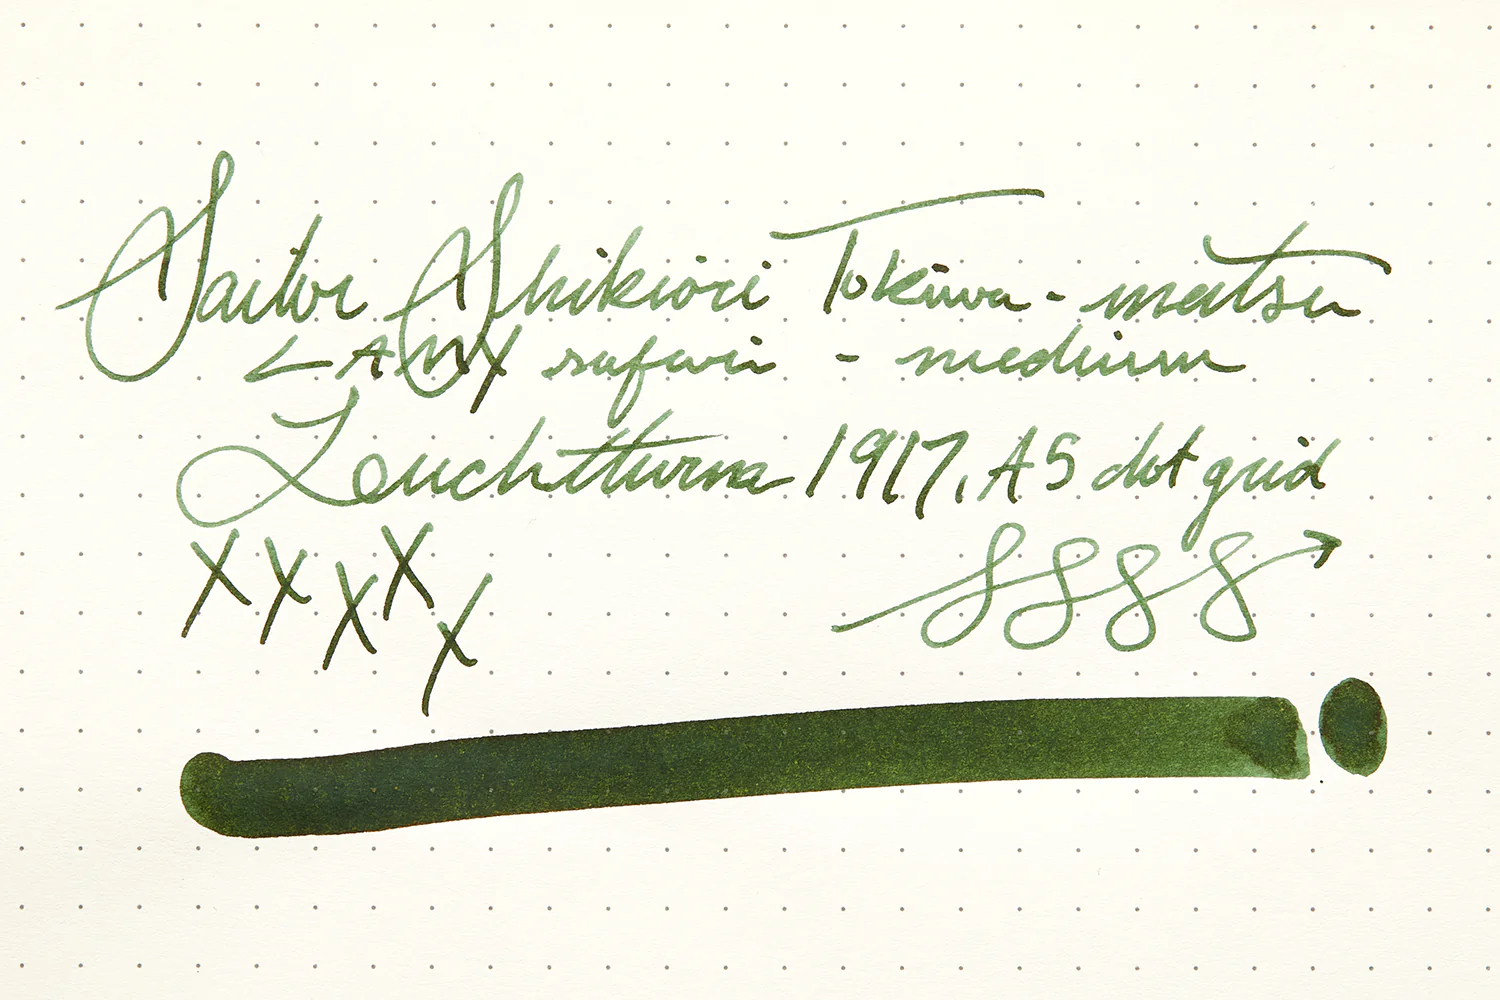 Sailor Shikiori Tokiwa-matsu
LAMY safari - medium
Leuchtturm 1917, A5 dot grid
X X X X X